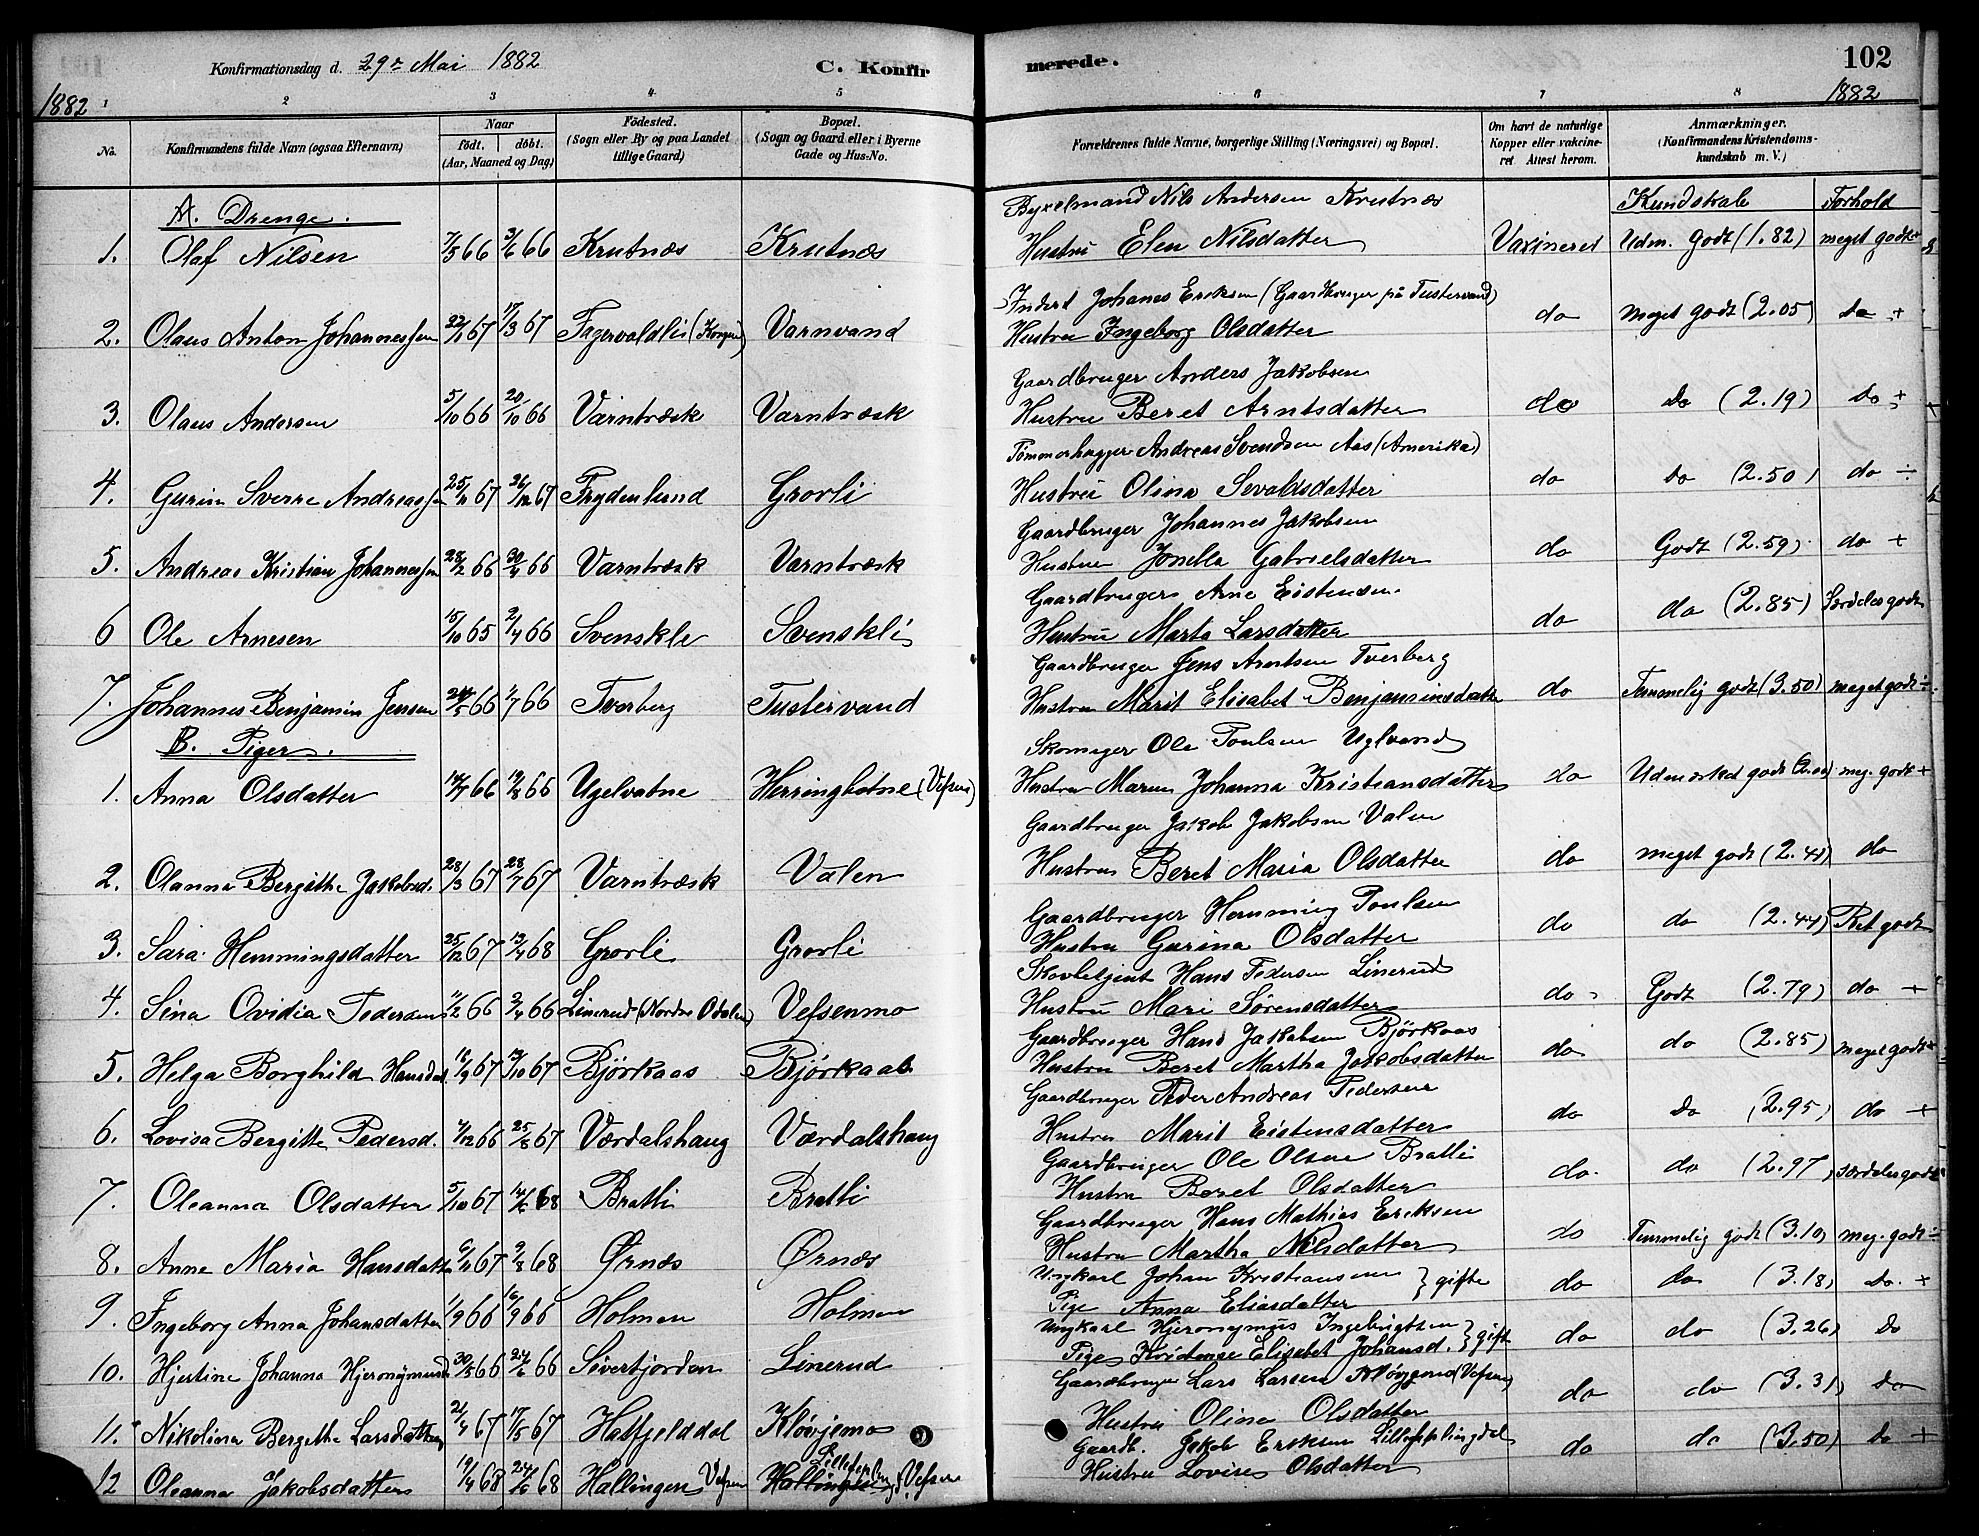 Konfirmationsdag d. 29de Mai 1882
C. Konfirmerede.
102
1882
1882
1 2 3 4 5 6 7 8
No.
Konfirmandens fulde Navn (ogsaa Efternavn)
Naar
født. døbt.
(Aar, Maaned og Dag)
Fødested.
(Sogn eller By og paa Landet
tillige Gaard)
Bopæl.
(Sogn og Gaard eller i Byerne
Gade og Hus-No.
Forældrenes fulde Navne, borgerlige Stilling (Næringsvei) og Bopæl.
Om havt de naturlige
Kopper eller vakcine-
ret Attest herom.
Anmærkninger.
(Konfirmandens Kristendoms-
kundskab m. V.)
Kundskab Forhold
A. Drenge.
Byxelmand Nils Andersen Krutnæs
1. Olaf Nilsen 7/5 66 3/6 66 Krutnæs Krutnæs Hustru Elen Nilsdatter Vaxineret Udm. Godt (1.82) meget godt +
Inderst Johanes Eriksen (Gaardbruger på Tustervand)
2. Olaus Anton Johannessen 22/1 67 17/3 67 Fagervaldlii (Korgen) Varnvand Hustru Ingeborg Olsdatter do Meget godt (2.05) do +
Gaardbruger Anders Jakobsen
3. Olaus Andersen 5/10 66 20/10 66 Varntræsk Varntræsk Hustru Beret Arntsdatter do Do (2.19) Do +
Tømmerhugger Andreas Svendsen Aas (Amerika)
4. Gurin Sverre Andreassen 25/11 67 26/12 67 Frydenlund Grovli Hustru Olina Sevaldsdatter do Do (2.50) do ÷
Gaardbruger Johannes Jakobsen
5. Andreas Kristian Johannessen 28/2 66 30/4 66 Varntræsk Varntræsk Hustru Jonetta Gabrielsdatter do Godt (2.59) do +
Gaardbruger Arne Eistensen
6 Ole Arnesen 15/10 65 2/4 66 Svenskli Svenskli Hustru Marta Larsdatter do do (2.85) Særdeles godt
Gaardbruger Jens Arntsen Tverberg
7. Johannes Benjamin Jensen 24/5 66 1/7 66 Tverberg Tustervand Hustru Marit Elisabet Benjaminsdatter do Temmelig godt (3.50) meget godt ÷
B. Piger.
Skomager Ole Poulsen Uglvand
1. Anna Olsdatter 14/7 66 19/8 66 Ugelvatne Herringbotne (Vefsen) Hustru Maren Johanna Kristiansdatter do Udmærked godt meg. godt +
Gaardbruger Jakob Jakobsen Valen
2. Olanna Bergitte Jakobsd. 28/3 67 28/7 67 Varntræsk Valen Hustru Beret Maria Olsdatter do meget godt (2.41) do
Gaardbruger Hemming Poulsen
3. Sara Hemmingsdatter 25/12 67 13/4 68 Grovli Grovli Hustru Gurina Olsdatter do do (2.44) Ret godt
Skovbetjent Hans Pedersen Linerud
4. Sina Ovidia Pedersen 11/2 66 2/4 66 Linerud (Nordre Odalen) Vefsenmo Hustru Mari Sørensdatter do Godt (2.79) do +
Gaardbruger Hans Jakobsen Björkaas
5. Helga Borghild Hansdat 16/9 67 13/10 67 Björkaas Björkaas Hustru Beret Martha Jakobsdatter do do (2.85) meget godt +
Gaardbruger Peder Andreas Pedersen
6. Lovisa Bergitte Pedersd. 7/12 66 25/8 67 Værdalshaug Værdalshaug Hustru Marit Eistensdatter do Do (2.95) do +
Gaardbruger Ole Olsen Bratli
7. Oleanna Olsdatter 5/10 67 14/6 68 Bratli Bratli Hustru Beret Olsdatter do do (2.97) særdeles godt
Gaardbruger Hans Mathias Eriksen
8. Anne Maria Hansdatter 6/11 67 9/8 68 Ørnæs Ørnæs Hustru Martha Nilsdatter do Temmelig godt (3.10) meg. godt ÷
Ungkarl Johan Kristiansen } gifte
9. Ingeborg Anna Johansdatter 1/9 66 16/9 66 Holmen Holmen Pige Anna Eliasdatter do do (3.18) Do. +
Ungkarl Hjeronymus Ingebrigtsen } gifte
10. Hjertine Johanna Hjeronymusd 30/5 66 24/6 66 Sivertjorden Linerud Pige Kristense Elisabet Johansd. do do (3.26) Do
Gaardbruger Lars Larsen (Vefsen)
11. Nikolina Bergethe Larsdatter 21/4 67 17/5 67 Hatfjelddal Kløvjemo Hustru Olina Olsdatter do do (3.31) Do
Gaardb. Jakob Eriksen
12 Oleanna Jakobsdatter 19/4 68 24/6 68 Hallingen Vefsen Vefsen Hustru Lovise Olsdatter do do (3.50) Do +